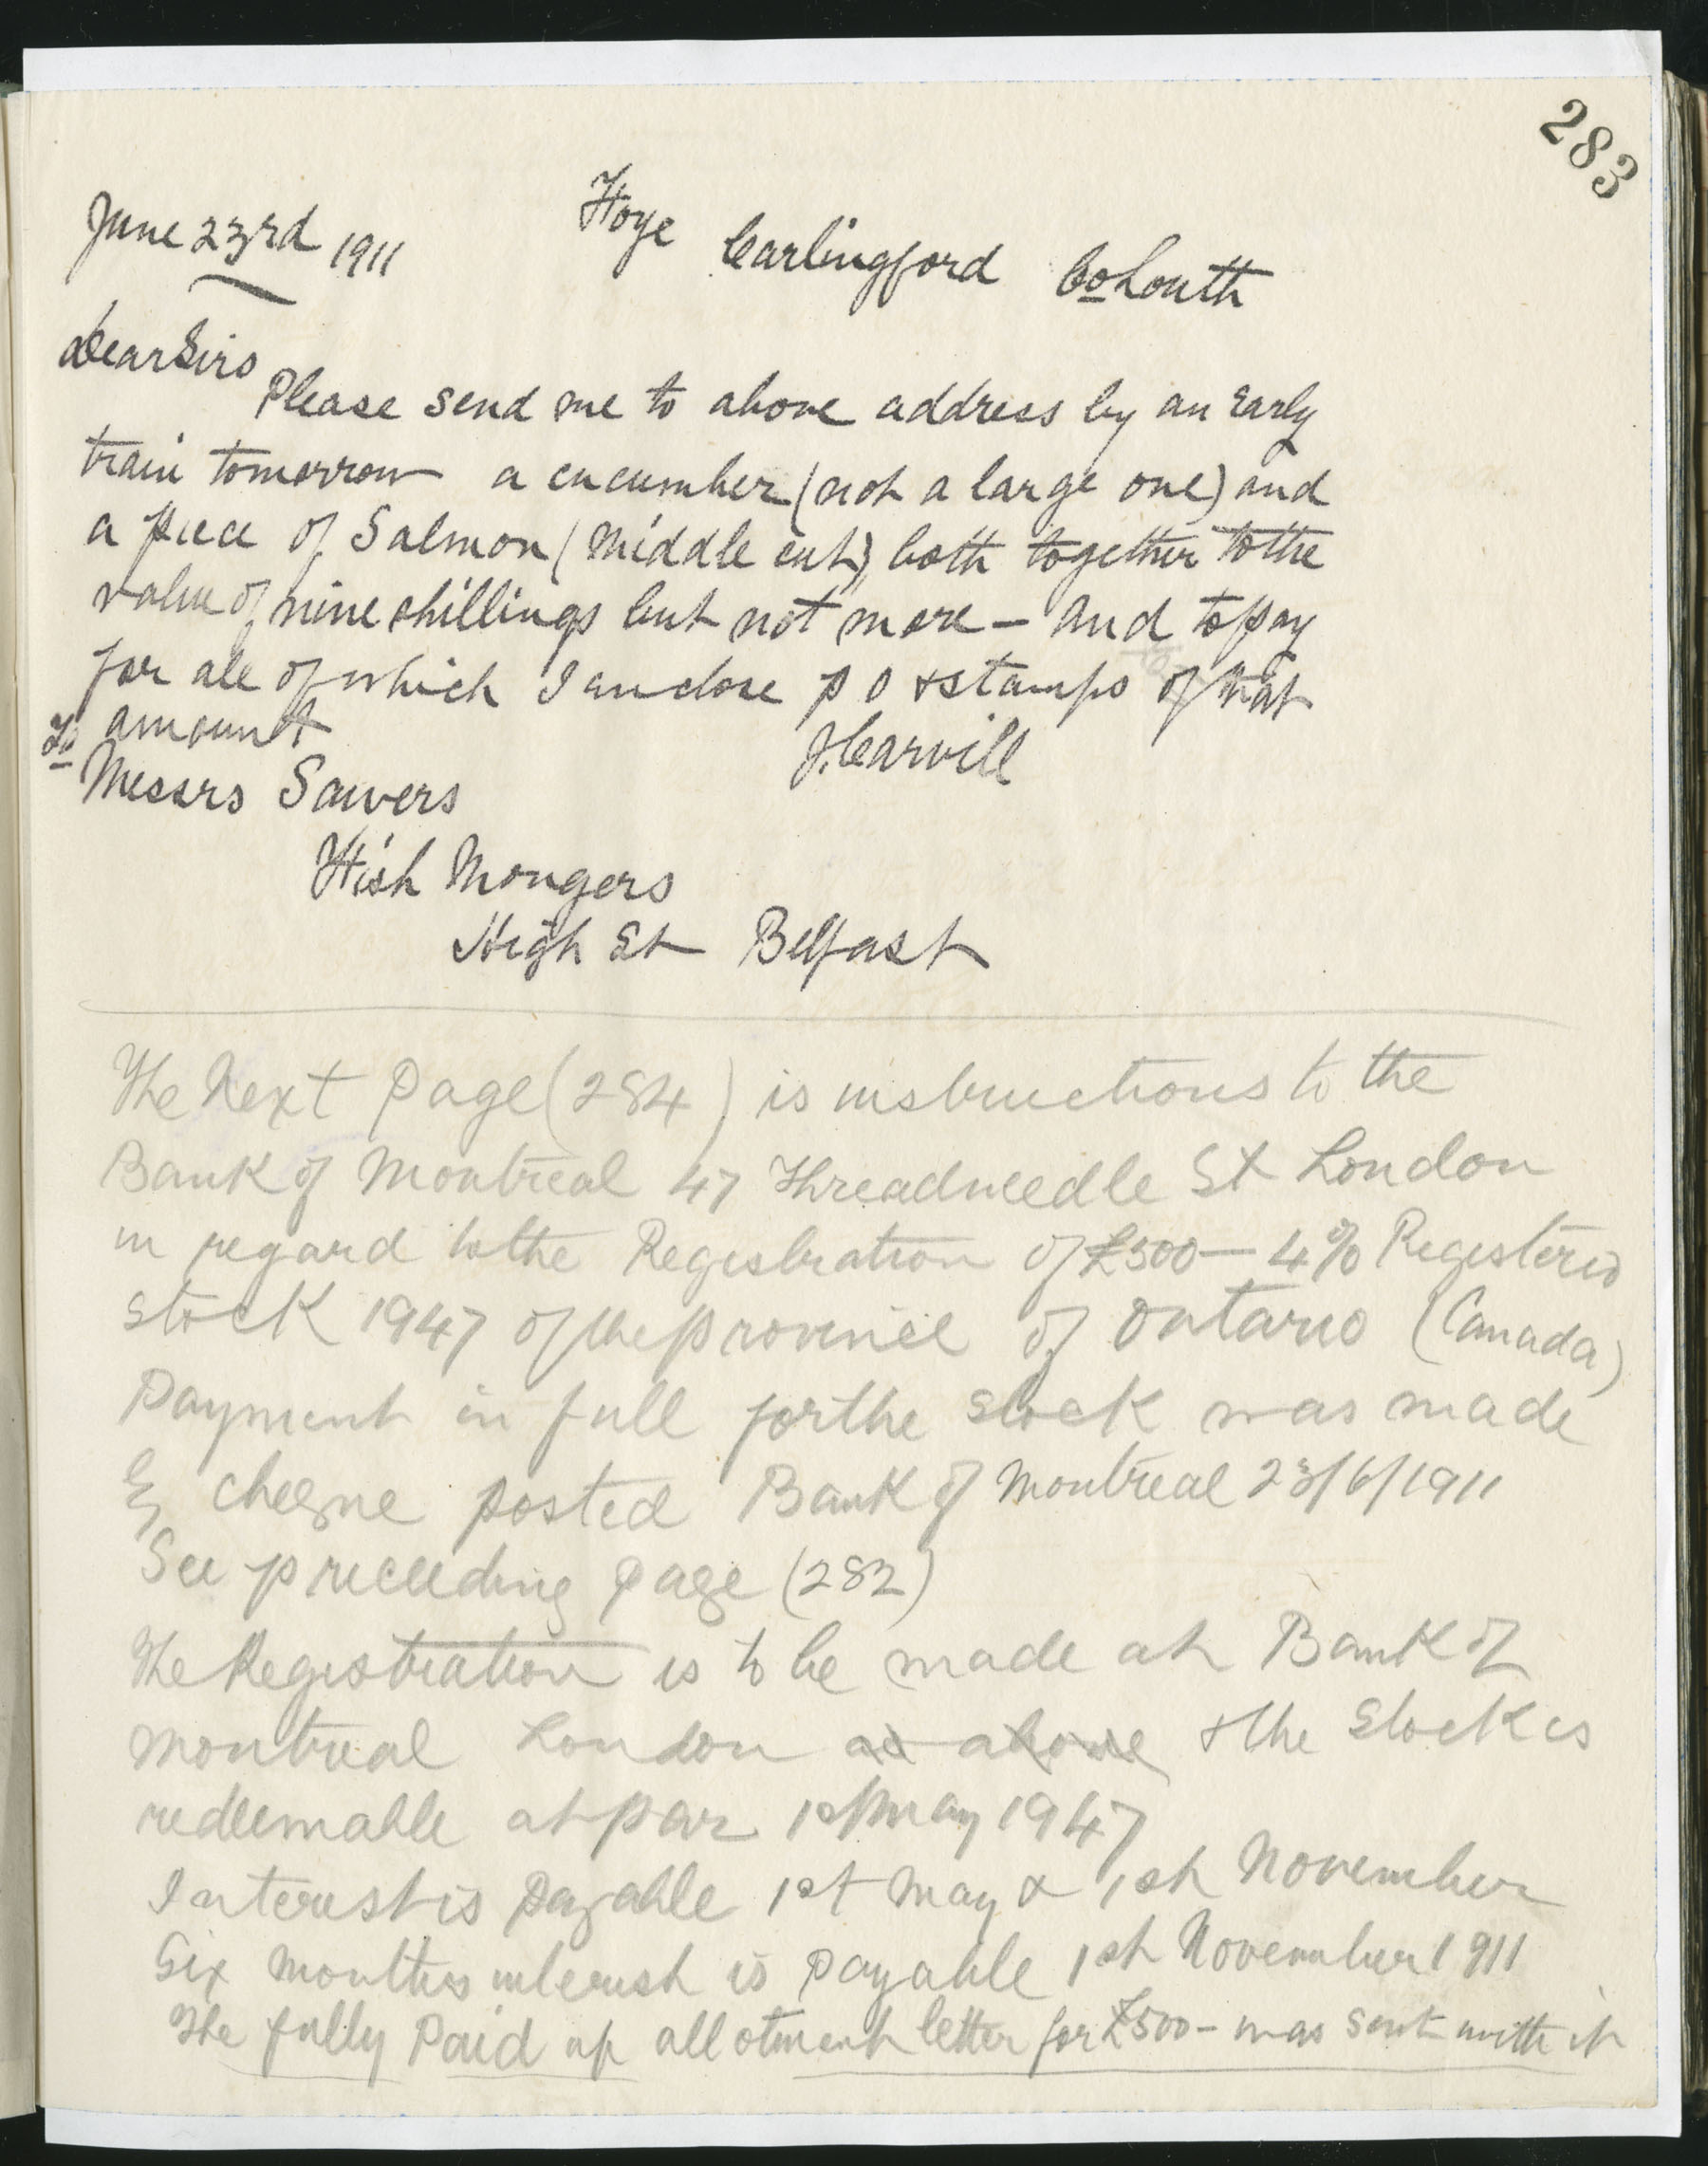 283
June 23rd 1911 Foye Carlingford Co Louth
Dear Sirs
Please send me to above address by an Early
train tomorrow a cucumber (not a large one) and
a piece of Salmon (middle cut), both together to the
value of nine shillings but not more — and to pay
for all of which I enclose p o & stamps of that
amount
J. Carvill
To
Messrs Sawers
Fish Mongers
High St Belfast
The Next Page (284) is instructions to the
Bank of Montreal 47 Threadneedle St London
in regard to the Registration of £500 — 4% Registered
stock 1947 of the province of Ontario (Canada)
Payment in full for the stock was made
by cheque posted Bank of Montreal 23/6/1911
See preceeding page (282)
The Registration is to be made at Bank of
Montreal London as above & the Stock is
redeemable at par 1st May 1947
Interest is payable 1st May & 1st November
Six months interest is payable 1st November 1911
The fully Paid up allotment letter for £500 – was sent with it